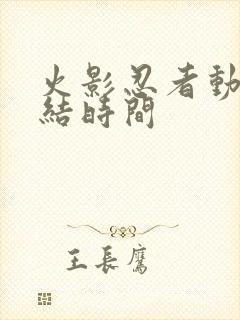 火影忍者動
結時間
王長鷹